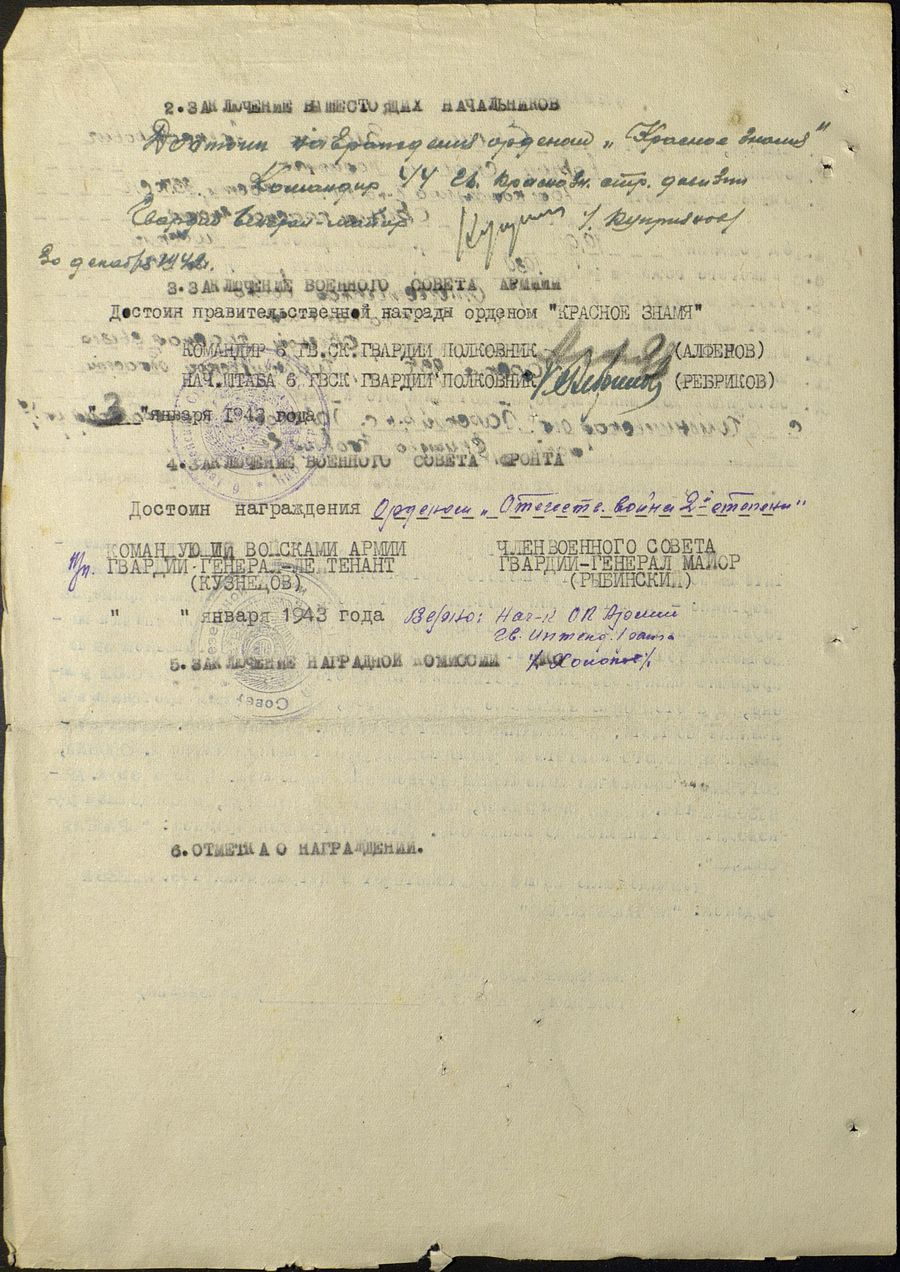 2.ЗАКЛЮЧЕНИЕ ВЫШЕСТОЯЩИХ НАЧАЛЬНИКОВ
Достоин награждения орденом „Красное знамя"
Командир 44 гв. краснозн. стр. дивизии
Гвардии генерал-майор /Куприянов/
30 декабря 1942г.
3.ЗАКЛЮЧЕНИЕ ВОЕННОГО СОВЕТА АРМИИ
Достоин правительственной награды орденом "КРАСНОЕ ЗНАМЯ"
КОМАНДИР 6 ГВ.СК.ГВАРДИИ ПОЛКОВНИК (АЛФЕНОВ)
НАЧ.ШТАБА 6 ГВСК ГВАРДИИ ПОЛКОВНИК (РЕБРИКОВ)
"3 "января 1943 года
4.ЗАКЛЮЧЕНИЕ ВОЕННОГО СОВЕТА ФРОНТА
Достоин награждения Орденом „Отечеств. войны 2й степени"
КОМАНДУЮЩИЙ ВОЙСКАМИ АРМИИ ЧЛЕН ВОЕННОГО СОВЕТА
ГВАРДИИ-ГЕНЕРАЛ-ЛЕ ТЕНАНТ ГВАРДИИ-ГЕНЕРАЛ МАЙОР
(КУЗНЕЦОВ) (РЫБИНСКИЙ)
" " января 1943 года Верно: Нач-к ОК Армии
гв. интенд. 1 ранга
5.ЗАКЛЮЧЕНИЕ НАГРАДНОЙ КОМИССИИ
6.ОТМЕТКА О НАГРАЖДЕНИИ.